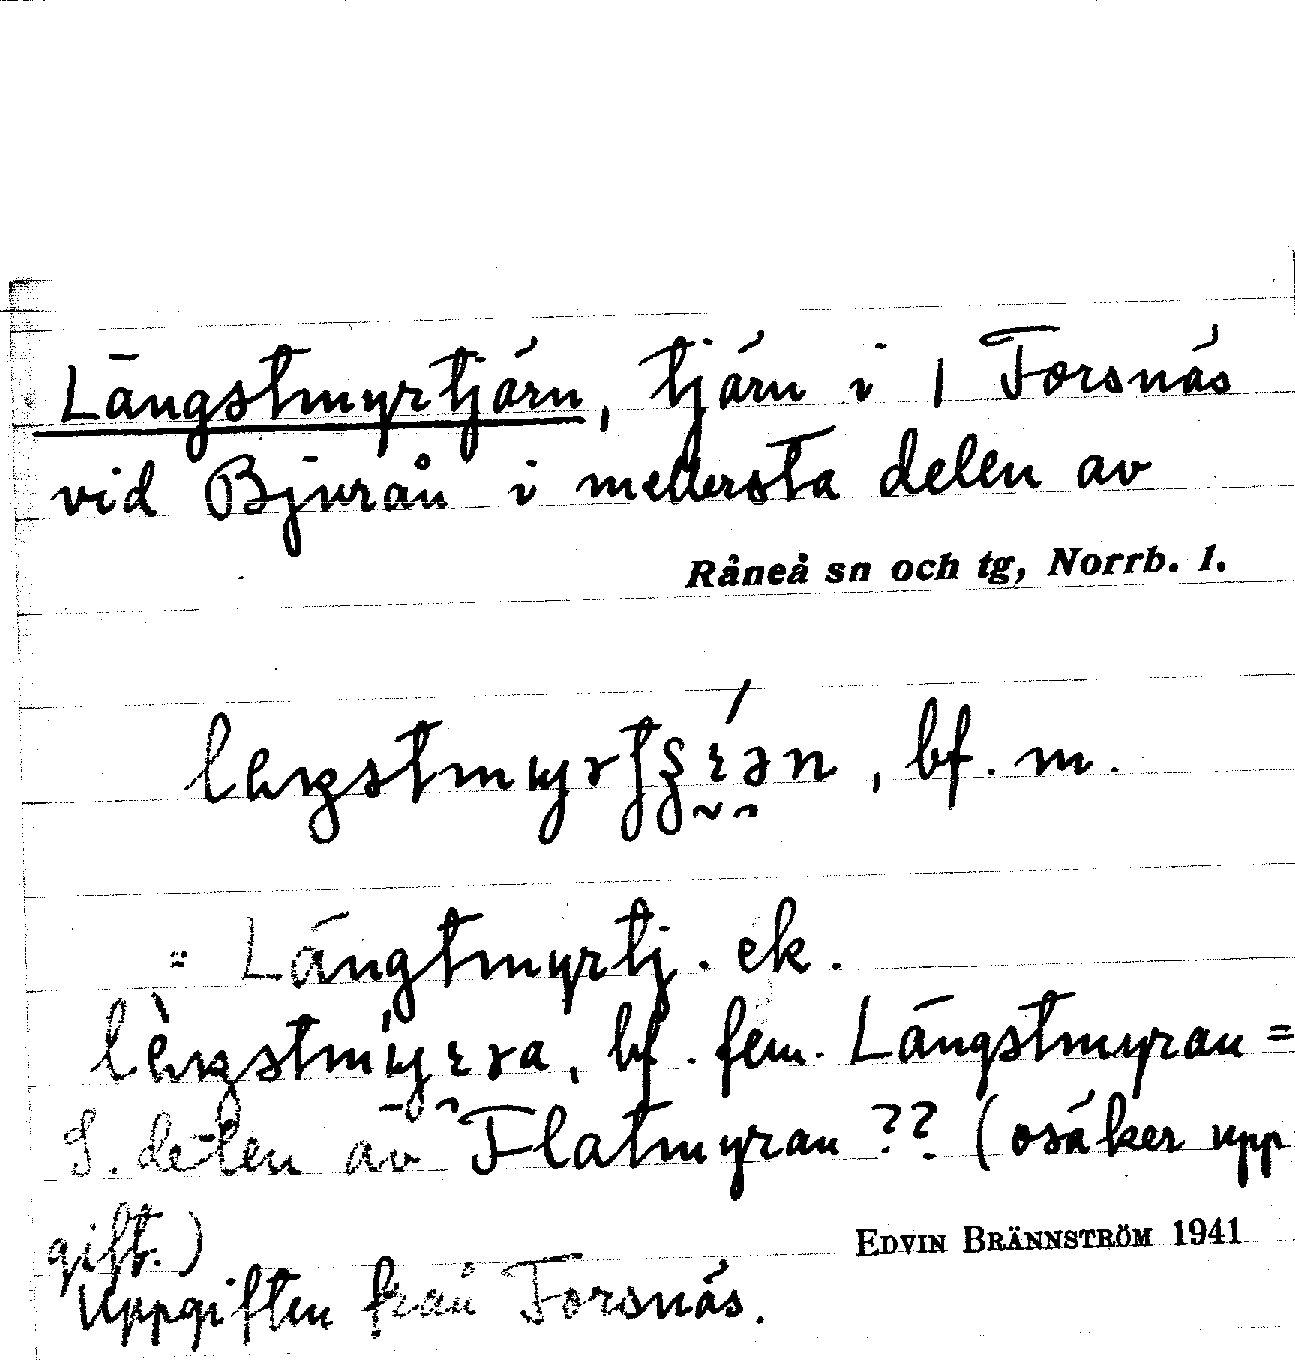 Långstmyrtjärn, tjärn i 1 Forsnäs
vid Bjurån i mellersta delen av
Råneå sn och tg, Norrb. l.
, bf. m.
= Långtmyrtj. ek.
, bf. fem. Långstmyran =
S. delen av Flatmyran ?? (osäker upp
gift.)
EDVIN BRÄNNSTRÖM 1941
Uppgiften från Forsnäs.